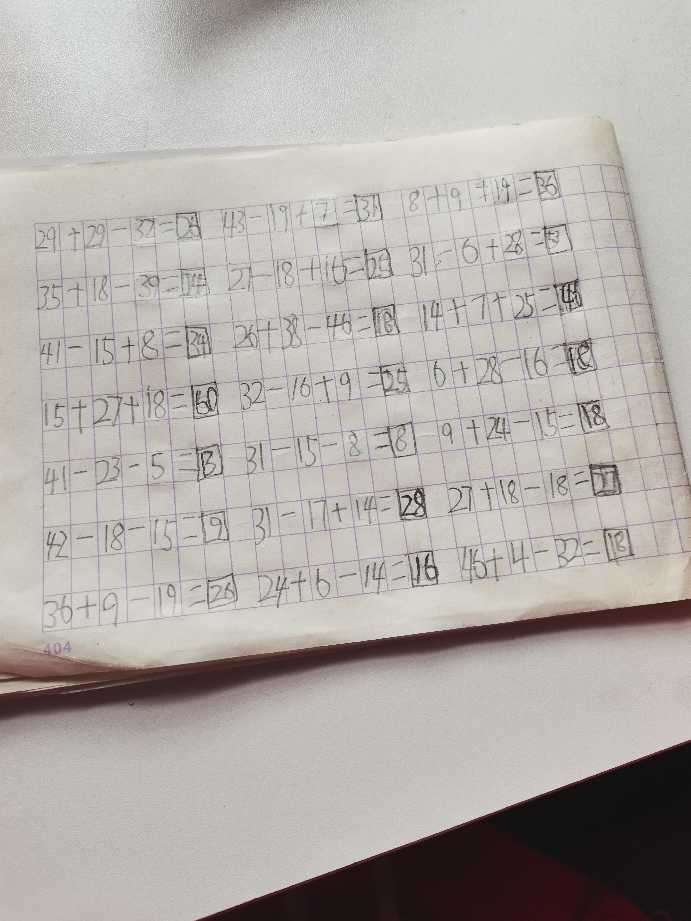 29+29-32=26 43-19+7=31 8+9+19=36
35+18-39=14 27-18+16=25 31-6+28=53
41-15+8=34 26+38-46=18 14+7+25=46
15+27+18=60 32-16+9=25 6+28-16=18
41-23-5=13 31-15-8=8 9+24-15=18
42-18-15=9 31-17+14=28 27+18-18=27
36+9-19=26 24+6-14=16 46+4-32=18
404